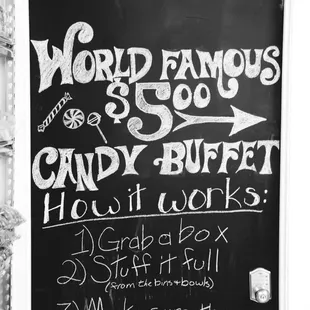 WORLD FAMOUS
$5.00
CANDY BUFFET
How it works:
1) Grab a box
2) Stuff it full
(from the bins & bowls)